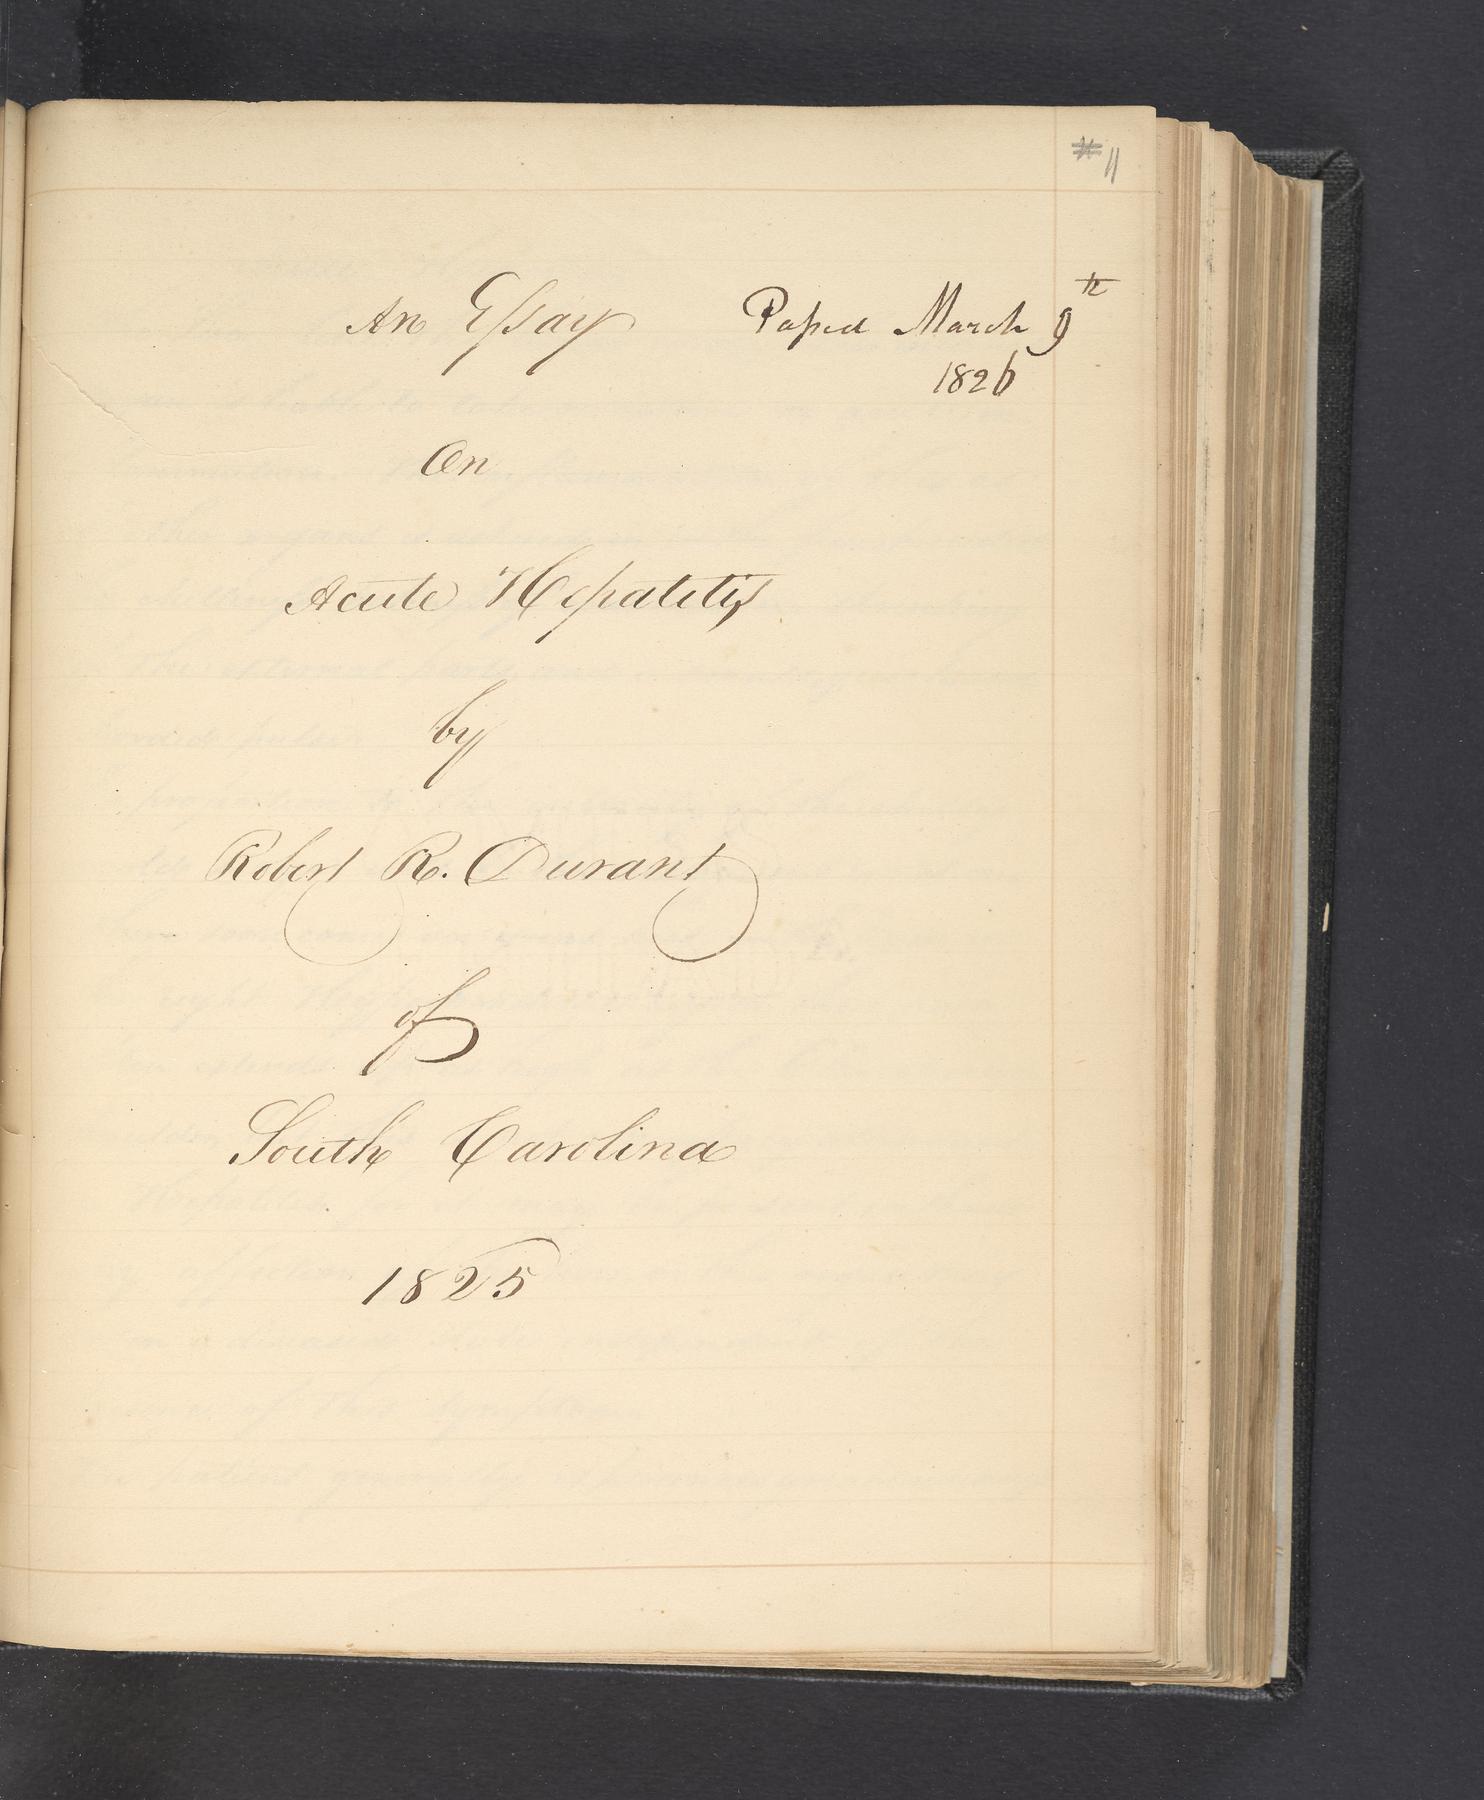 #11
An Essay Passed March 9th
1826
On
Acute Hepatitis
by
Robert R. Durant
of
South Carolina
1825